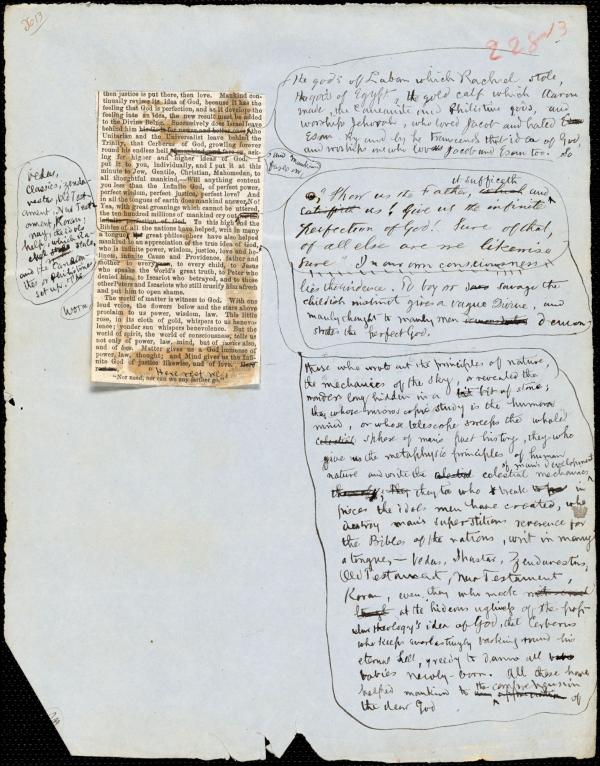 2613
228
The gods of Laban which Rachel stole,
the gods of Egypt, the gold calf which Aaron
made, the Canaanite and Philistine gods, and
worship Jehovah, who loved Jacob and hated
Esau. By and by he transcends that idea of God,
and worships one who loves Jacob and Esau too. So
then justice is put there, then love. Mankind con-
tinually revises its idea of God, because it has the
feeling that God is perfection, and as it develops the
feeling into an idea, the new result must be added
to the Divine Being. Successively does Israel leave
behind him his Gods for newer and better ones, the
Unitarian and the Universalist leave behind the
Trinity, that Cerberus of God, growling forever
round his endless hell, ask-
ing for higher and higher ideas of God.
It is to you, individually, and I put it at this
minute to Jew, Gentile, Christian, Mahomedan, an
all thoughtful mankind.—Will anything content
you less than the Infinite God, of perfect power,
perfect wisdom, perfect justice, perfect love? And
in all the tongues of earth does mankind answer, No!
Yea, with great groanings which cannot be uttered,
the ten hundred millions of mankind cry out
infinite perfection of God. To this high end the
Bibles of all the nations have helped, writ in many
a tongue; the great philosophers have also helped
mankind to an appreciation of the true idea of God,
who is infinite power, wisdom, justice, love and ho-
liness, infinite Cause and Providence, father and
mother to every one, to every child, to Jesus
who speaks the World's great truth, to Peter who
denied him, to Iscariot who betrayed, and to those
other Peters and Iscariots who still crucify him afresh
and put him to open shame.
The world of matter is witness to God. With one
loud voice, the flowers below and the stars above
proclaim to us power, wisdom, law. This little
rose, in its cloth of gold, whispers to us benevo-
lence; yonder sun whispers benevolence. But the
world of spirit, the world of consciousness, tells us
not only of power, law, mind, but of justice also,
and of love. Matter gives us a God immense of
power, law, thought; and Mind gives us the Infi-
nite God of justice likewise, and of love.
"Here rest we!
"Nor need, nor can we any farther go."
and mankind
passes on,
Vedas,
Classics, Zenda-
vesta, Old Test
ament, New Test
ament, Koran,
it sufficeth
"Show us the Father and
us! Give us the infinite
Perfection of God! Sure of that,
of all else are we likewise
sure." In our own consciousness
lies the evidence. To boy or savage the
childish instinct gives a vague Divine, and
manly thought to manly men demon
strates the perfect God.
Those who wrote out the principles of nature,
the mechanics of the sky, or revealed the
wonders long hidden in a bit of stone;
they whose microscopic study is the human
mind, or whose telescope sweeps the whole
celestial sphere of man's past history, they who
give us the metaphysic principles of human
nature and write the celestial mechanics of man's development
they too who break in
pieces the idols men have created, who
destroy man's superstitious reverence for
the Bibles of the nations, writ in many
a tongue,— Vedas, Shastas, Zendavestas,
Old Testament, New Testament,
Koran, even they who mock
at the hideous ugliness of the pop
ular theology's idea of God, the Cerberus
who keeps everlastingly barking round his
eternal hell, greedy to damn all
babies newly-born. All these have
helped mankind to the comprehension of
the dear God